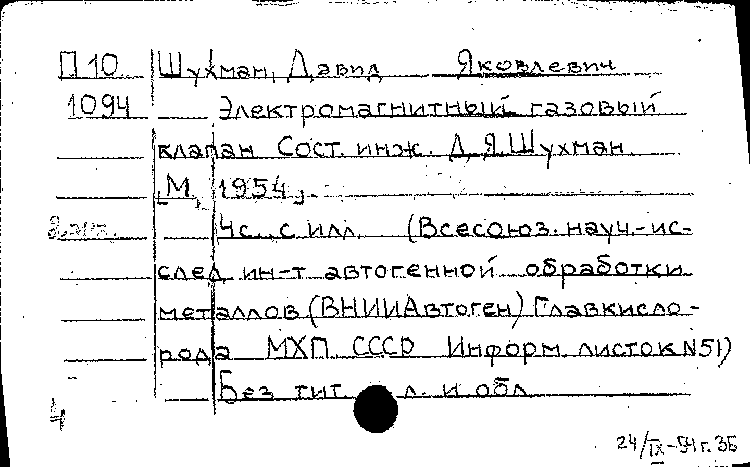 П 10 Шухман, Давид Яковлевич
1094 Электромагнитный газовый
клапан Сост. инж. Д.Я.Шухман.
[М., 1954].
2 экз. 4с., с илл. (Всесоюз. науч.-ис-
след ин-т автогенной обработки
металлов (ВНИИАвтоген) Главкисло-
рода МХП СССР Информ. листок N51)
Без тит. л. и обл
4
24/IX-54г. ЗБ